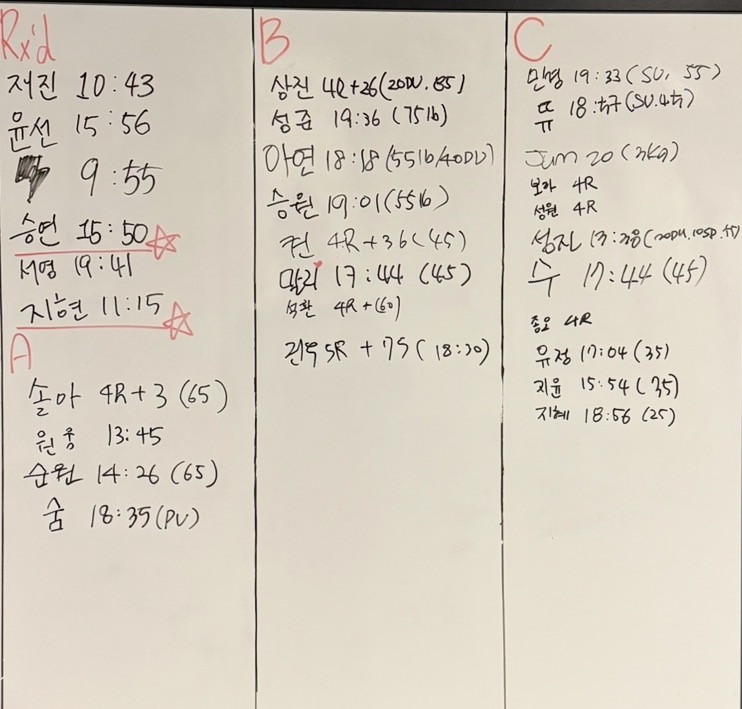 Rx'd
재진 10:43
윤선 15:56
9:55
승연 15:50
서영 19:41
지현 11:15
A
솔아 4R+3 (65)
원웅 13:45
순원 14:26 (65)
숨 18:35 (PU)
B
상진 4R+26 (20DU.
성준 19:36 (75lb)
아연 18:18 (55lb/40DU)
승원 19:01 (55lb)
퀸 4R+36 (45)
말리 17:44 (45)
석환 4R+(60)
건우 5R + 75 (18:30)
C
민영 19:33 (SU, 55)
뜌
Jum 20 (3kg)
보라 4R
성원 4R
성진
수 17:44 (45)
종오 4R
유정 17:04 (35)
지윤 15:54 (35)
지혜 18:56 (25)